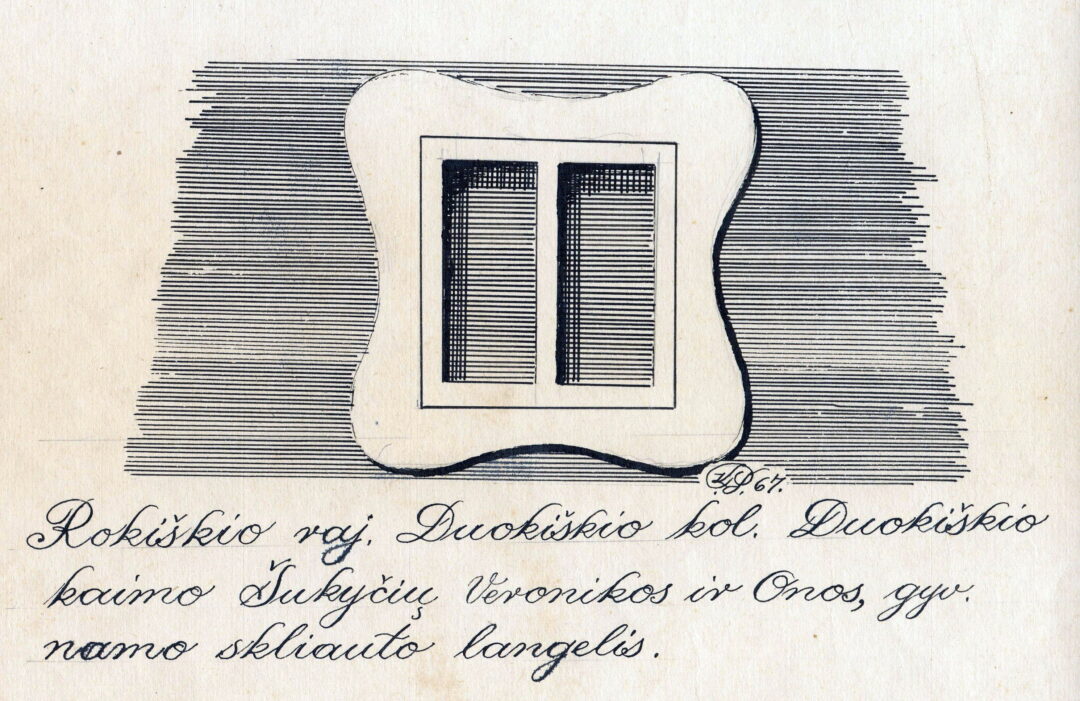 67.
Rokiškio raj. Duokiškio kol. Duokiškio
kaimo Šukyčių Veronikos ir Onos, gyv.
namo skliauto langelis.